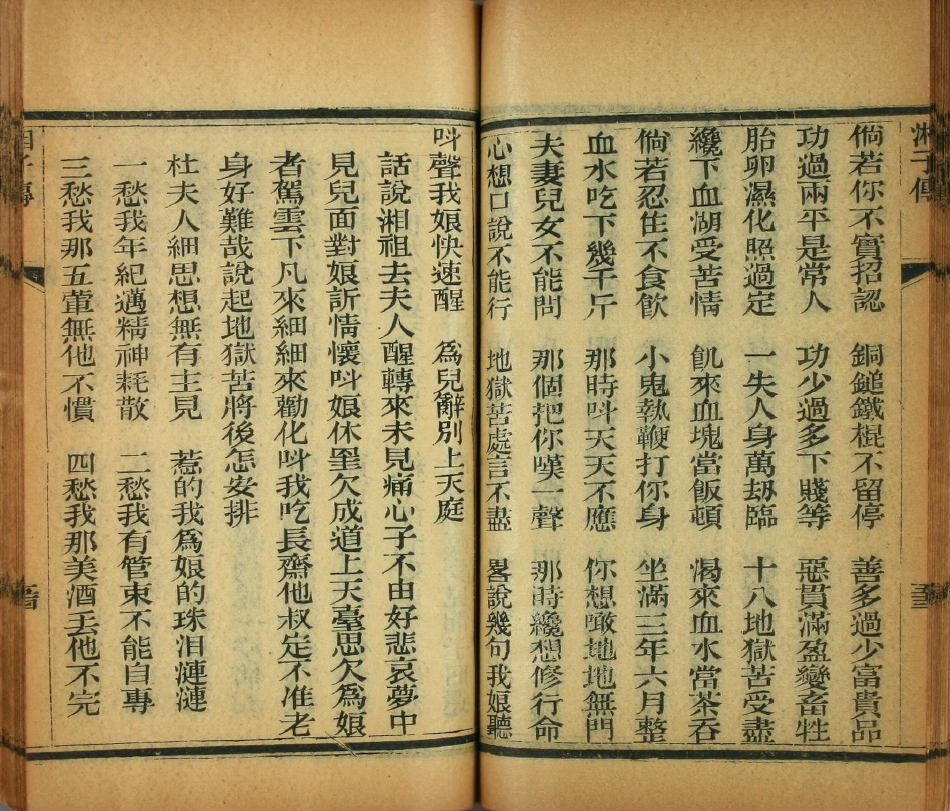 湘子傳
倘若你不實招認　銅鎚鐵棍不留停　善多過少富貴品
功過兩平是常人　功少過多下賤等　惡貫滿盈變畜牲
胎卵濕化照過定　一失人身萬劫臨　十八地獄苦受盡
纔下血湖受苦情　飢來血塊當飯頓　渴來血水當茶吞
倘若忍住不食飲　小鬼執鞭打你身　坐滿三年六月整
血水吃下幾千斤　那時呌天天不應　你想瞰地地無門
夫妻兒女不能問　那個把你嘆一聲　那時纔想修行命
心想口說不能行　地獄苦處言不盡　畧說幾句我娘聽
呌聲我娘快速醒　爲兒辭別上天庭
話說湘祖去夫人醒轉來未見痛心子不由好悲哀夢中
見兒面對娘訢情懷呌娘休罣欠成道上天臺思欠爲娘
者駕雲下凡來細細來勸化呌我吃長齋他叔定不准老
身好難哉說起地獄苦將後怎安排
杜夫人細思想無有主見　惹的我爲娘的珠泪漣漣
一愁我年紀邁精神耗散　二愁我有管束不能自專
三愁我那五葷無他不慣　四愁我那美酒去他不完